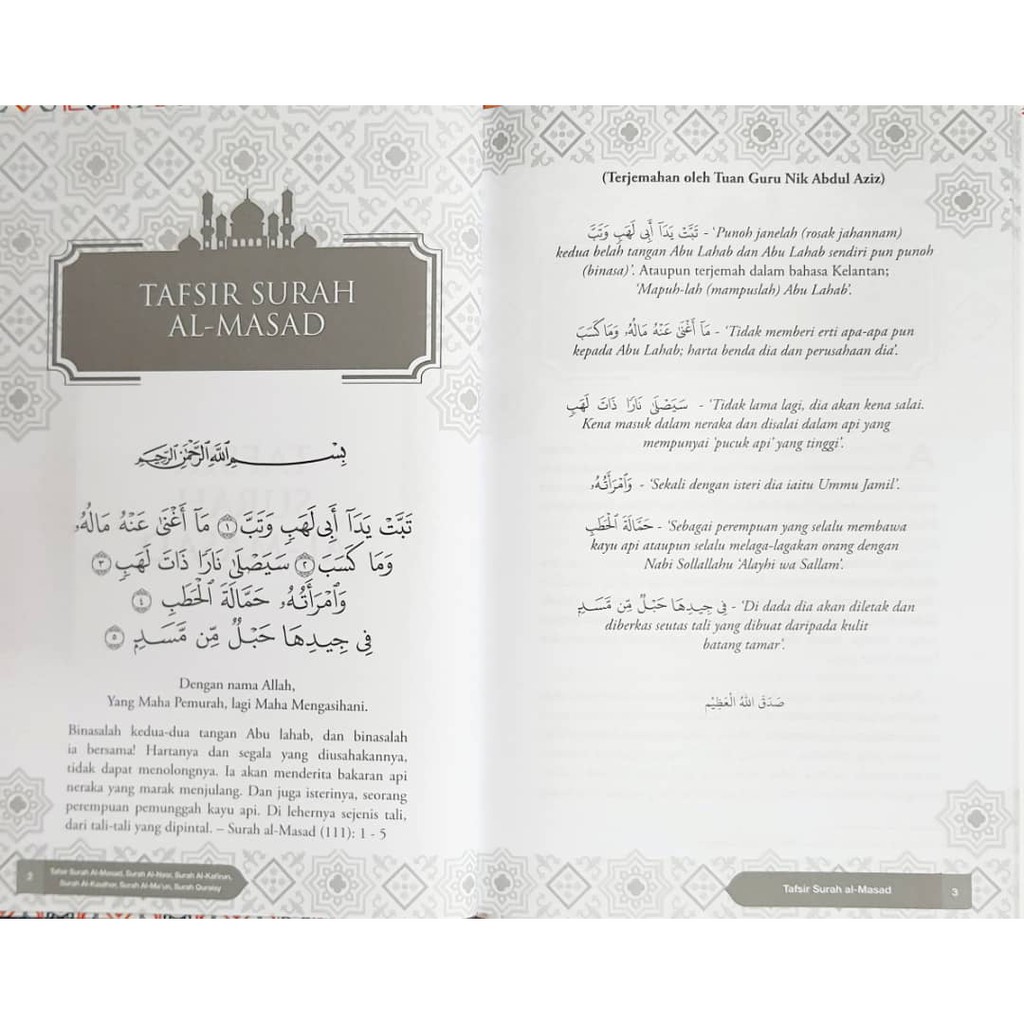 TAFSIR SURAH
AL-MASAD
بِسْمِ اللَّهِ الرَّحْمَٰنِ الرَّحِيمِ
تَبَّتْ يَدَآ أَبِى لَهَبٍ وَتَبَّ ۝١ مَآ أَغْنَىٰ عَنْهُ مَالُهُۥ
وَمَا كَسَبَ ۝٢ سَيَصْلَىٰ نَارًا ذَاتَ لَهَبٍ ۝٣
وَٱمْرَأَتُهُۥ حَمَّالَةَ ٱلْحَطَبِ ۝٤
فِى جِيدِهَا حَبْلٌ مِّن مَّسَدٍۭ ۝٥
Dengan nama Allah,
Yang Maha Pemurah, lagi Maha Mengasihani.
Binasalah kedua-dua tangan Abu lahab, dan binasalah
ia bersama! Hartanya dan segala yang diusahakannya,
tidak dapat menolongnya. Ia akan menderita bakaran api
neraka yang marak menjulang. Dan juga isterinya, seorang
perempuan pemunggah kayu api. Di lehernya sejenis tali,
dari tali-tali yang dipintal. – Surah al-Masad (111): 1 - 5
2
Tafsir Surah Al-Masad, Surah Al-Nasr, Surah Al-Kafirun,
Surah Al-Kauthar, Surah Al-Ma'un, Surah Quraisy
(Terjemahan oleh Tuan Guru Nik Abdul Aziz)
تَبَّتْ يَدَآ أَبِى لَهَبٍ وَتَبَّ - 'Punoh janelah (rosak jahannam)
kedua belah tangan Abu Lahab dan Abu Lahab sendiri pun punoh
(binasa)'. Ataupun terjemah dalam bahasa Kelantan;
'Mapuh-lah (mampuslah) Abu Lahab'.
مَآ أَغْنَىٰ عَنْهُ مَالُهُۥ وَمَا كَسَبَ - 'Tidak memberi erti apa-apa pun
kepada Abu Lahab; harta benda dia dan perusahaan dia'.
سَيَصْلَىٰ نَارًا ذَاتَ لَهَبٍ - 'Tidak lama lagi, dia akan kena salai.
Kena masuk dalam neraka dan disalai dalam api yang
mempunyai 'pucuk api' yang tinggi'.
وَٱمْرَأَتُهُۥ - 'Sekali dengan isteri dia iaitu Ummu Jamil'.
حَمَّالَةَ ٱلْحَطَبِ - 'Sebagai perempuan yang selalu membawa
kayu api ataupun selalu melaga-lagakan orang dengan
Nabi Sollallahu 'Alayhi wa Sallam'.
فِى جِيدِهَا حَبْلٌ مِّن مَّسَدٍۭ - 'Di dada dia akan diletak dan
diberkas seutas tali yang dibuat daripada kulit
batang tamar'.
صَدَقَ اللهُ الْعَظِيْم
Tafsir Surah al-Masad
3